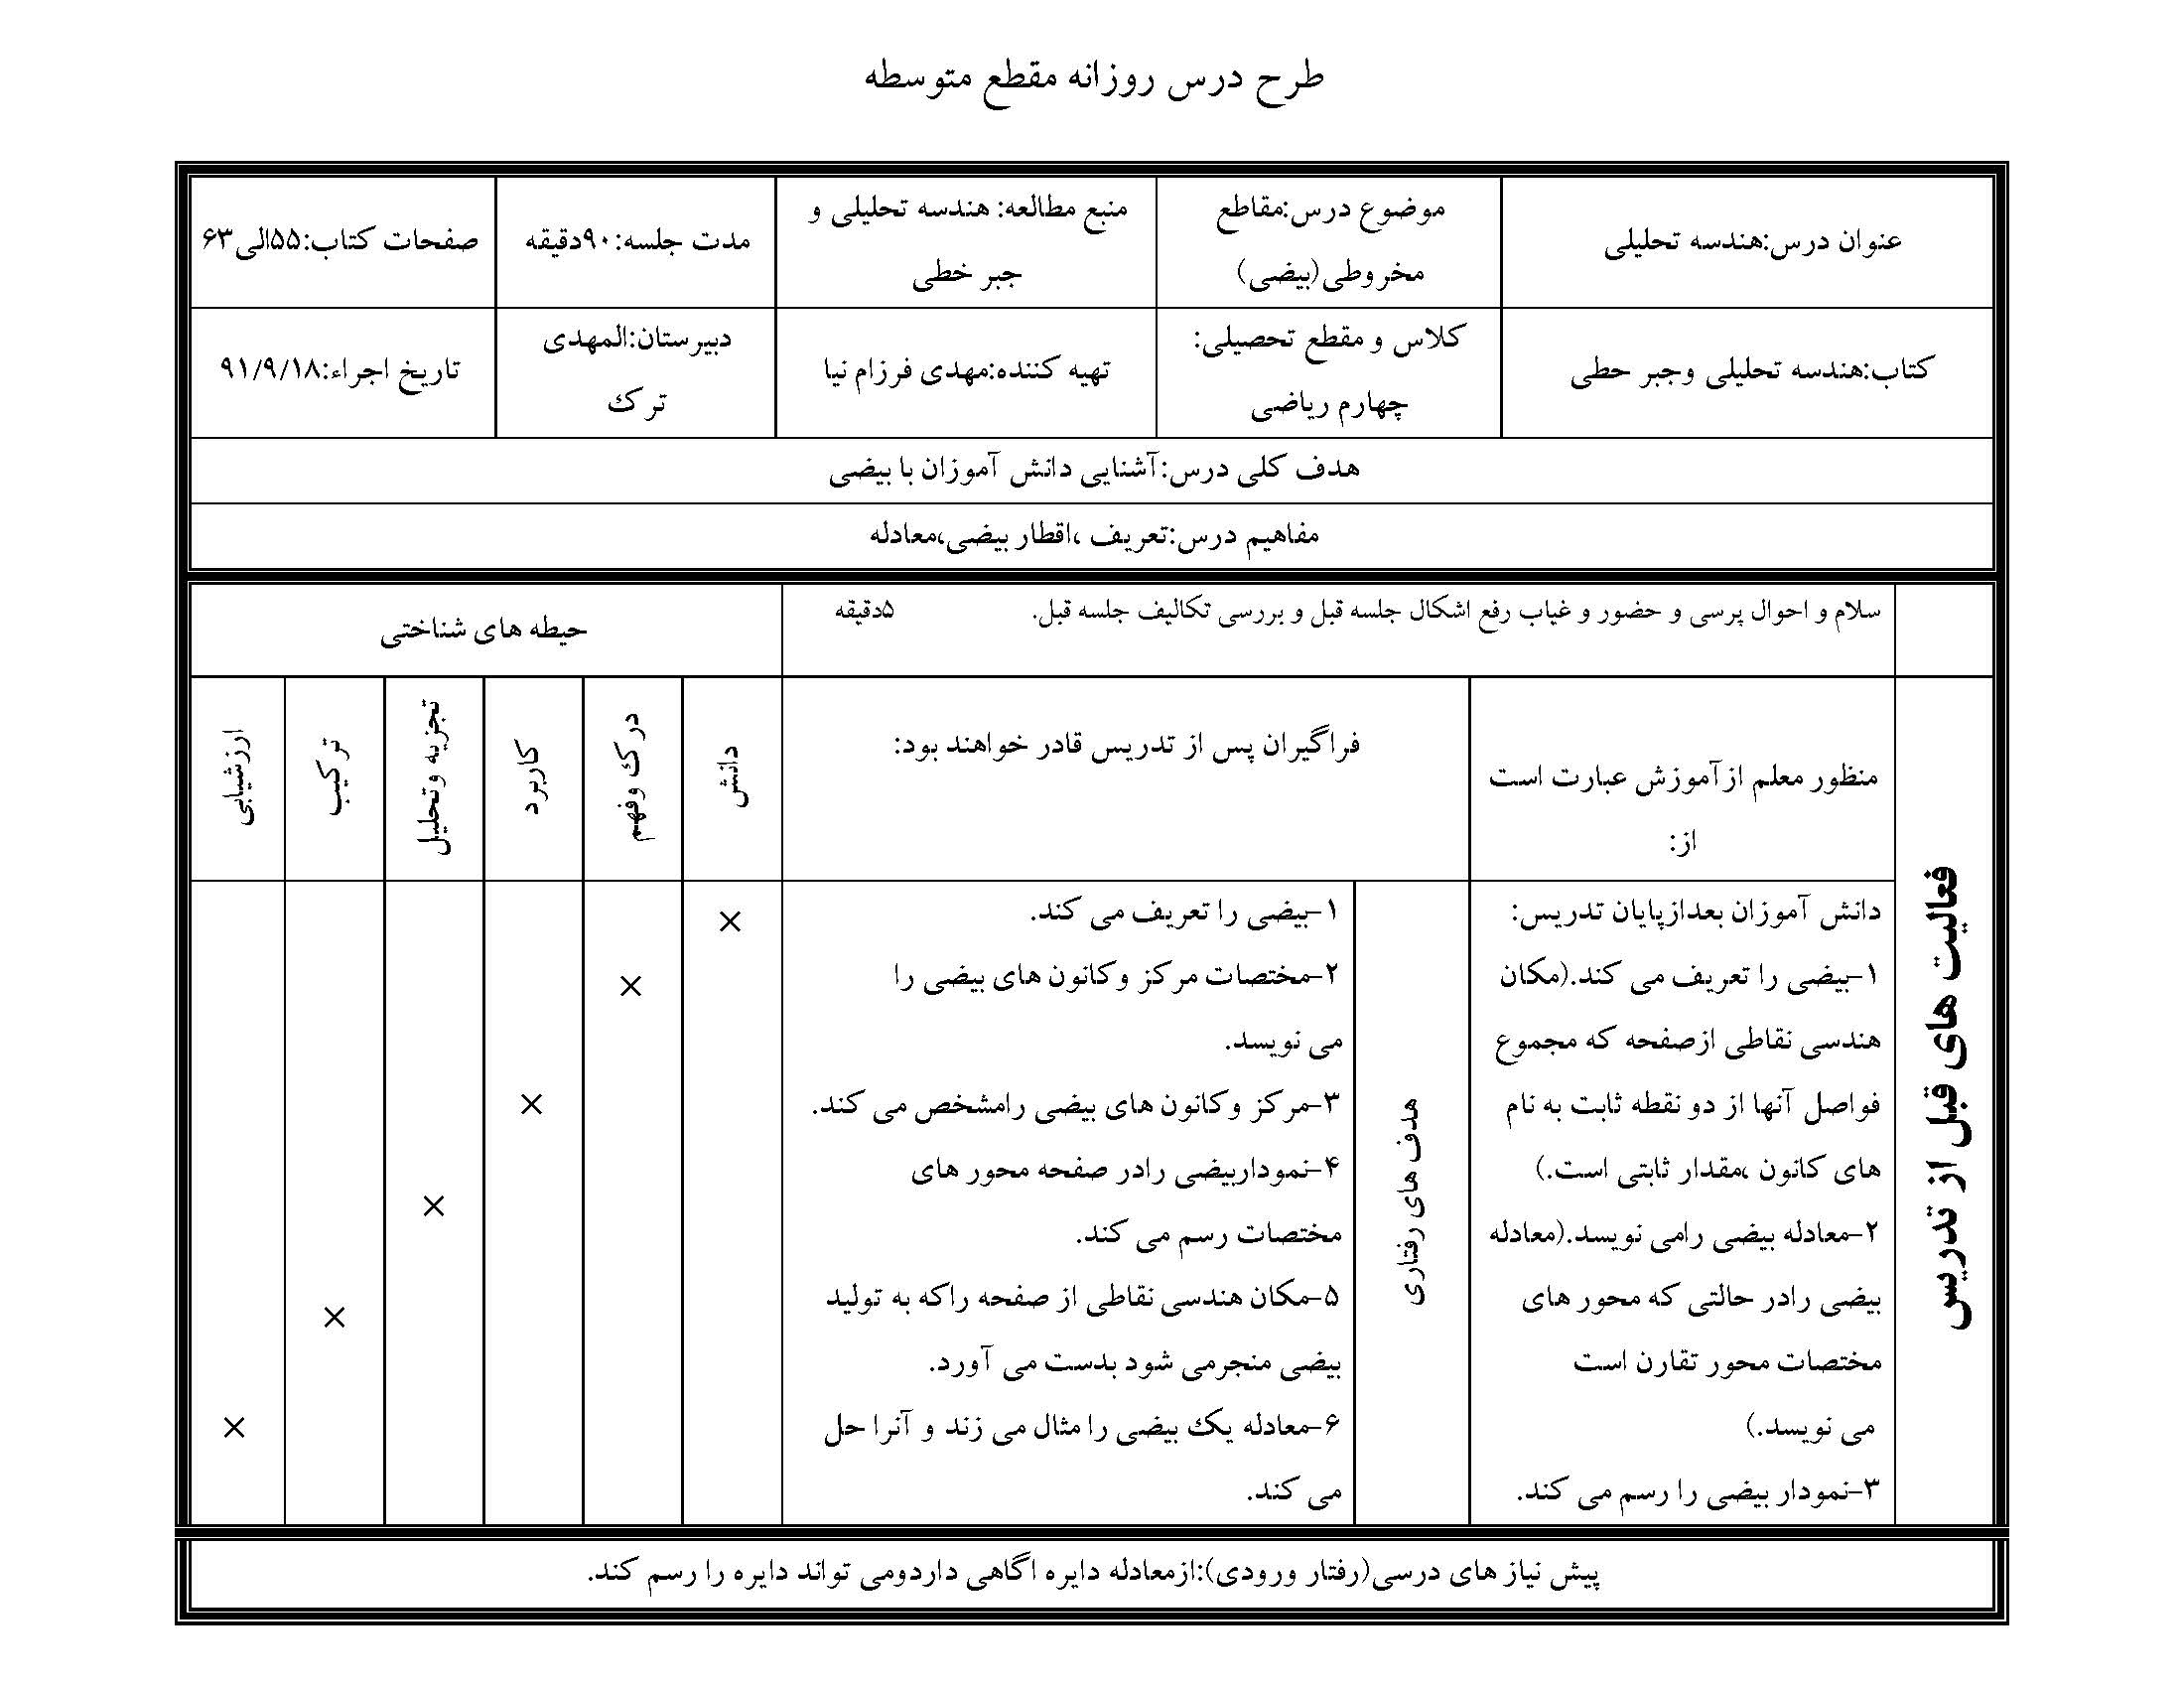 طرح درس روزانه مقطع متوسطه
عنوان درس:هندسه تحلیلی
موضوع درس:مقاطع
مخروطی(بیضی)
منبع مطالعه: هندسه تحلیلی و
جبر خطی
مدت جلسه:۹۰دقیقه
صفحات کتاب:۵۵الی۶۳
کتاب:هندسه تحلیلی وجبر حطی
کلاس و مقطع تحصیلی:
چهارم ریاضی
تهیه کننده:مهدی فرزام نیا
دبیرستان:المهدی
ترک
تاریخ اجراء:۹۱/۹/۱۸
هدف کلی درس:آشنایی دانش آموزان با بیضی
مفاهیم درس:تعریف ،اقطار بیضی،معادله
سلام و احوال پرسی و حضور و غیاب رفع اشکال جلسه قبل و بررسی تکالیف جلسه قبل. ۵دقیقه
حیطه های شناختی
فعالیت های قبل از تدریس
منظور معلم ازآموزش عبارت است
از:
فراگیران پس از تدریس قادر خواهند بود:
دانش
درک وفهم
کاربرد
تجزیه وتحلیل
ترکیب
ارزشیابی
دانش آموزان بعدازپایان تدریس:
۱-بیضی را تعریف می کند.(مکان
هندسی نقاطی ازصفحه که مجموع
فواصل آنها از دو نقطه ثابت به نام
های کانون ،مقدار ثابتی است.)
۲-معادله بیضی رامی نویسد.(معادله
بیضی رادر حالتی که محور های
مختصات محور تقارن است
می نویسد.)
۳-نمودار بیضی را رسم می کند.
هدف های رفتاری
۱-بیضی را تعریف می کند.
۲-مختصات مرکز وکانون های بیضی را
می نویسد.
۳-مرکز وکانون های بیضی رامشخص می کند.
۴-نموداربیضی رادر صفحه محور های
مختصات رسم می کند.
۵-مکان هندسی نقاطی از صفحه راکه به تولید
بیضی منجرمی شود بدست می آورد.
۶-معادله یک بیضی را مثال می زند و آنرا حل
می کند.
×
×
×
×
×
×
پیش نیاز های درسی(رفتار ورودی):ازمعادله دایره اگاهی داردومی تواند دایره را رسم کند.